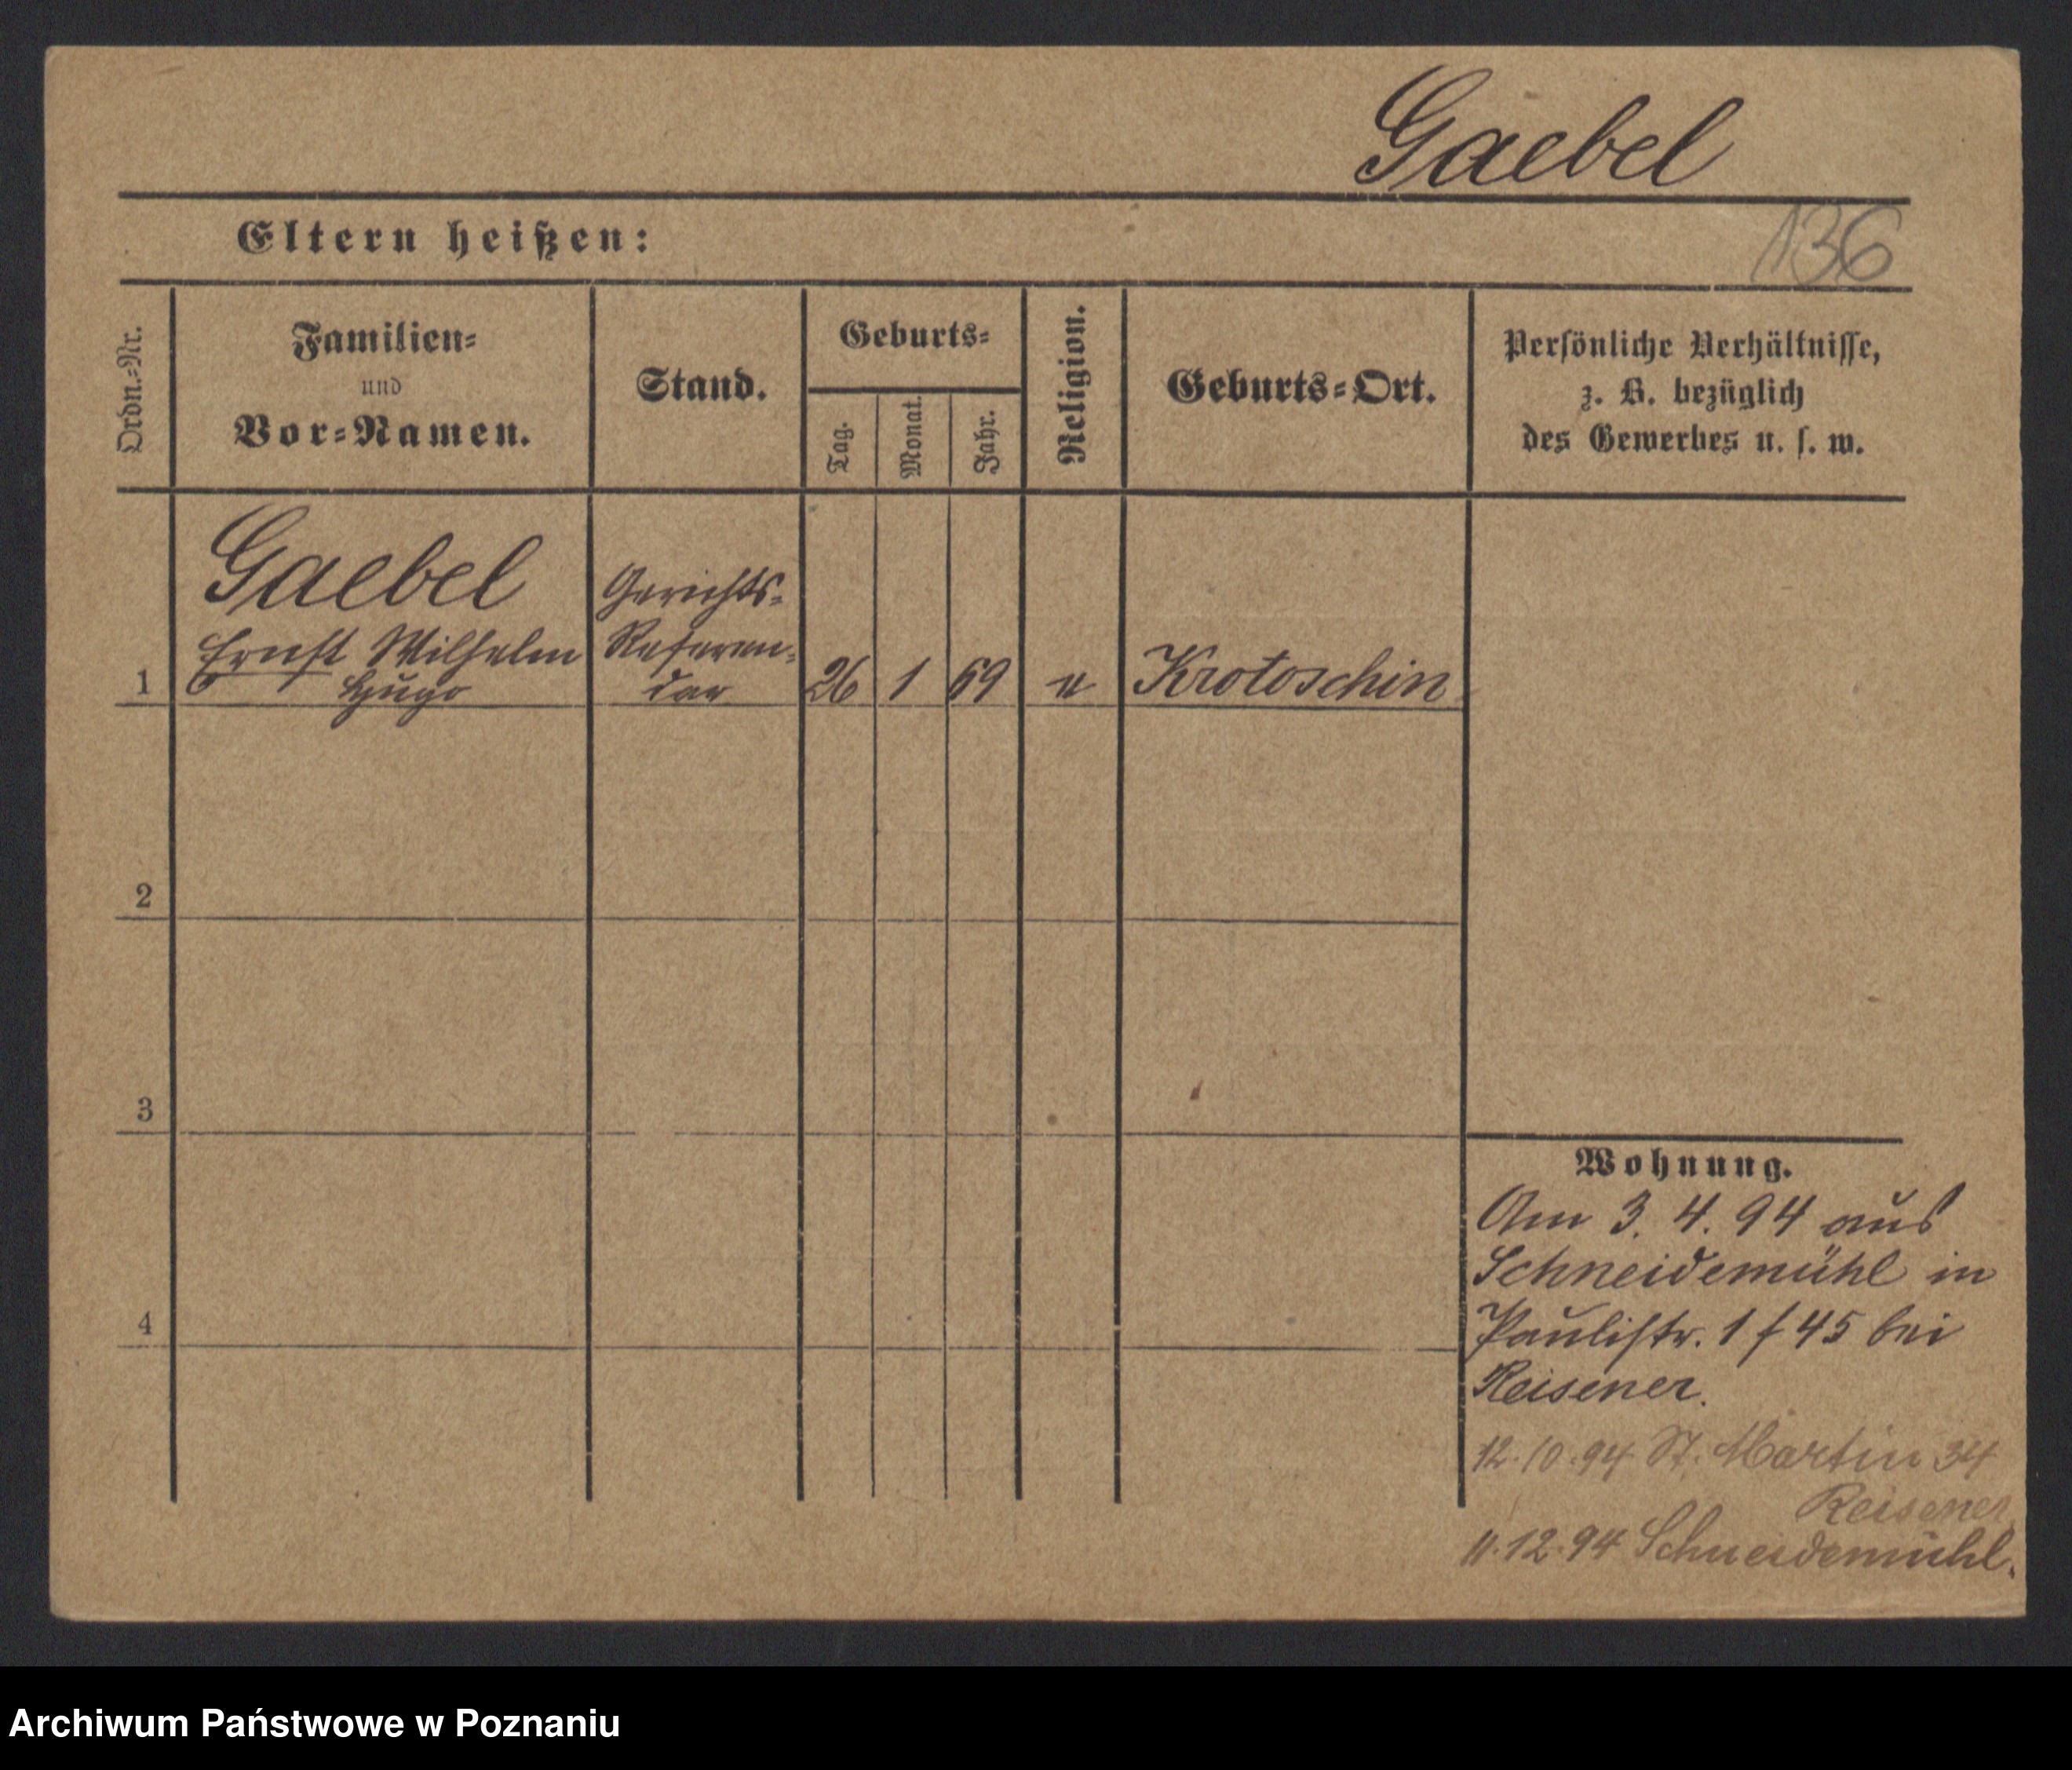 Gaebel
Eltern heißen:
136
Ordn.-Nr.
Familien-
und
Vor-Namen.
Stand.
Geburts-
Tag.
Monat.
Jahr.
Religion.
Geburts-Ort.
Persönliche Verhältnisse,
z. B. bezüglich
des Gewerbes u. s. w.
Gaebel
Ernst Wilhelm
Hugo
Gerichts-
Referen-
dar
1
26
1
69
e
Krotoschin
2
3
4
Wohnung.
Am 3. 4. 94 aus
Schneidemühl in
Paulistr. 1 f 45 bei
Reisener.
12.10.94 St. Martin 34
Reisener
11.12.94 Schneidemühl.
Archiwum Państwowe w Poznaniu